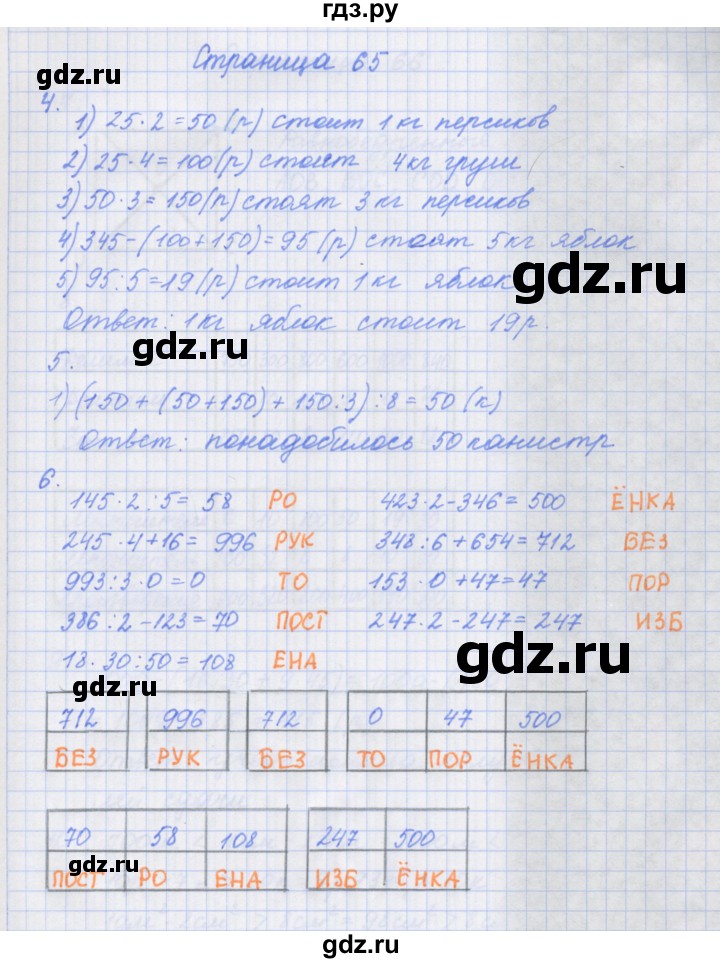 гдз.ру
Страница 65
gdz.ru
4.
1) 25·2=50 (р) стоит 1 кг персиков
2) 25·4=100(р) стоит 4кг груш
3) 50·3=150(р) стоят 3 кг персиков
4) 345-(100+150)=95(р) стоят 5кг яблок
gdz.ru
5) 95:5=19(р) стоит 1кг яблок
Ответ: 1кг яблок стоит 19р.
gdz.ru
5.
1) (150+(50+150)+150:3):8=50 (к)
Ответ: понадобилось 50 канистр
6.
145·2:5=58 РО 423·2-346=500 ЁНКА
245·4+16=996 РУК 348:6+654=712 БЕЗ
993:3·0=0 ТО 153·0+47=47 ПОР
386:2-123=70 ПОСТ 247·2-247=247 ИЗБ
18·30:50=108 ЕНА
gdz.ru
gdz.ru
712 996 712 0 47 500
БЕЗ РУК БЕЗ ТО ПОР ЁНКА
70 58 108 247 500
gdz.ru
ПОСТ РО ЕНА ИЗБ ЁНКА
gdz.ru